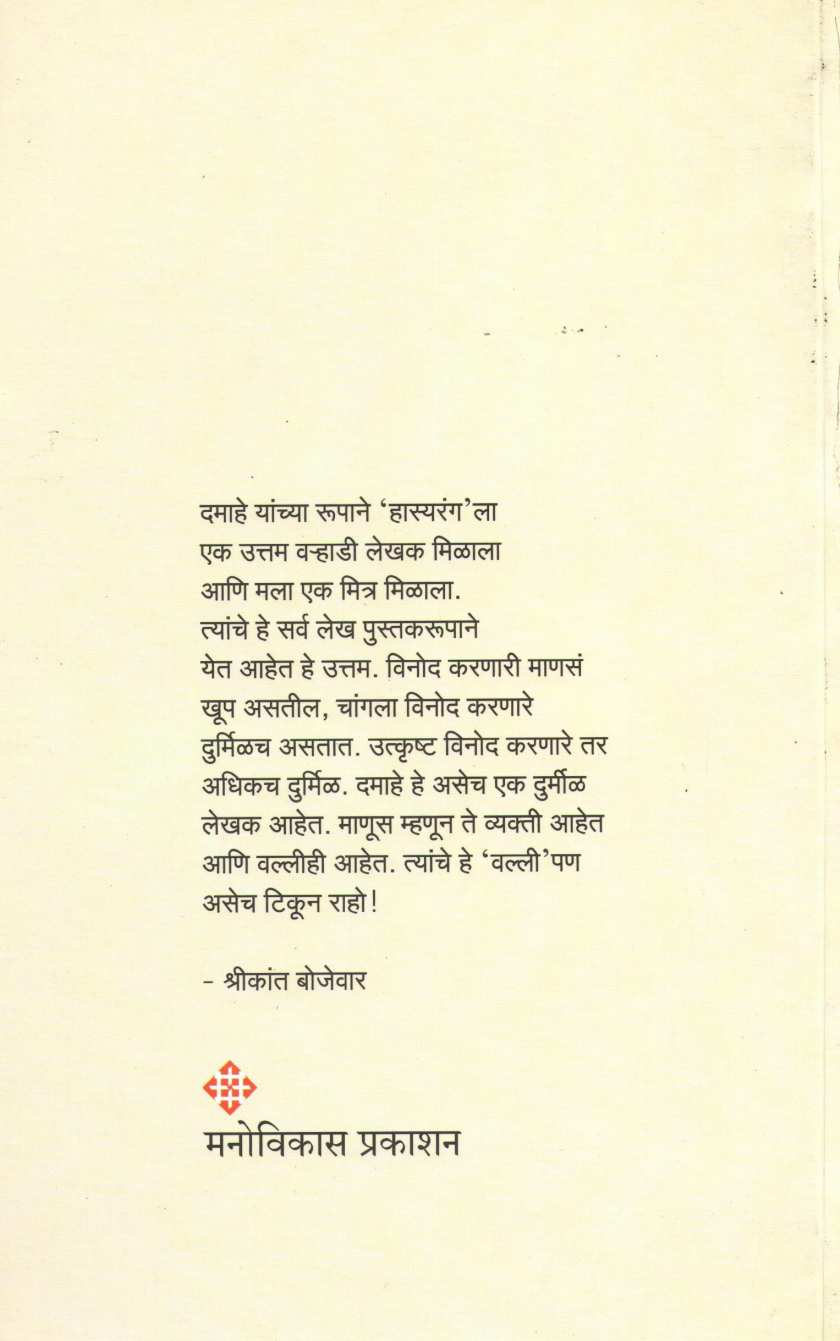 दमाहे यांच्या रूपाने ‘हास्यरंग’ला
एक उत्तम वऱ्हाडी लेखक मिळाला
आणि मला एक मित्र मिळाला.
त्यांचे हे सर्व लेख पुस्तकरूपाने
येत आहेत हे उत्तम. विनोद करणारी माणसं
खूप असतील, चांगला विनोद करणारे
दुर्मिळच असतात. उत्कृष्ट विनोद करणारे तर
अधिकच दुर्मिळ. दमाहे हे असेच एक दुर्मीळ
लेखक आहेत. माणूस म्हणून ते व्यक्ती आहेत
आणि वल्लीही आहेत. त्यांचे हे ‘वल्ली’पण
असेच टिकून राहो!
- श्रीकांत बोजेवार
मनोविकास प्रकाशन